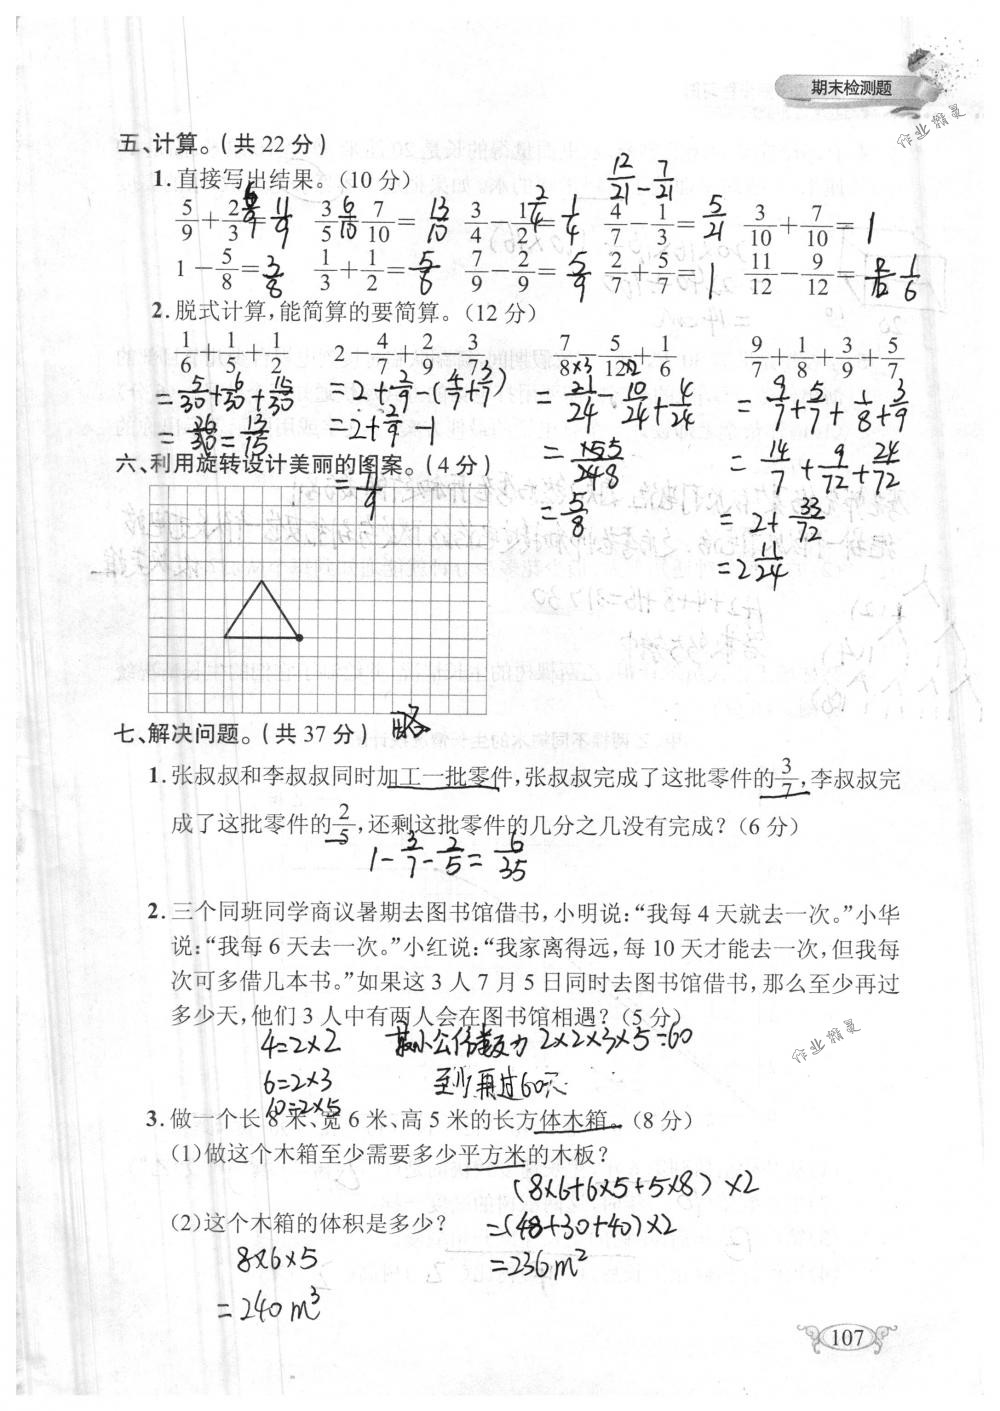 期末检测题
作业精灵
五、计算。(共22分)
1. 直接写出结果。(10分)
12/21 - 7/21
5/9 + 2/3 6/9 = 11/9 3/5 6/10 + 7/10 = 13/10 3/4 - 1/2 2/4 = 1/4 4/7 - 1/3 = 5/21 3/10 + 7/10 = 1
1 - 5/8 = 3/8 1/3 + 1/2 = 5/6 7/9 - 2/9 = 5/9 2/7 + 5/7 = 1 11/12 - 9/12 = 2/12 1/6
2. 脱式计算,能简算的要简算。(12分)
1/6 + 1/5 + 1/2 2 - 4/7 + 2/9 - 3/7 7/8 - 5/12 + 1/6 9/7 + 1/8 + 3/9 + 5/7
= 5/30 + 6/30 + 15/30 = 2 + 2/9 - (4/7 + 3/7) = 21/24 - 10/24 + 4/24 = 9/7 + 5/7 + 1/8 + 3/9
= 26/30 = 13/15 = 2 + 2/9 - 1 = 15/24 5/8 = 14/7 + 9/72 + 24/72
= 11/9 = 5/8 = 2 + 33/72
= 2 11/24
六、利用旋转设计美丽的图案。(4分)
略
七、解决问题。(共37分)
1. 张叔叔和李叔叔同时加工一批零件,张叔叔完成了这批零件的3/7,李叔叔完
成了这批零件的2/5,还剩这批零件的几分之几没有完成?(6分)
1 - 3/7 - 2/5 = 6/35
2. 三个同班同学商议暑期去图书馆借书,小明说:“我每4天就去一次。”小华
说:“我每6天去一次。”小红说:“我家离得远,每10天才能去一次,但我每
次可多借几本书。”如果这3人7月5日同时去图书馆借书,那么至少再过
多少天,他们3人中有两人会在图书馆相遇?(5分)
4=2×2 最小公倍数为 2×2×3×5=60
6=2×3 至少再过60天
10=2×5
作业精灵
3. 做一个长8米、宽6米、高5米的长方体木箱。(8分)
(1)做这个木箱至少需要多少平方米的木板?
(8×6+6×5+5×8)×2
(2)这个木箱的体积是多少? =(48+30+40)×2
8×6×5 =236m²
=240m³
107